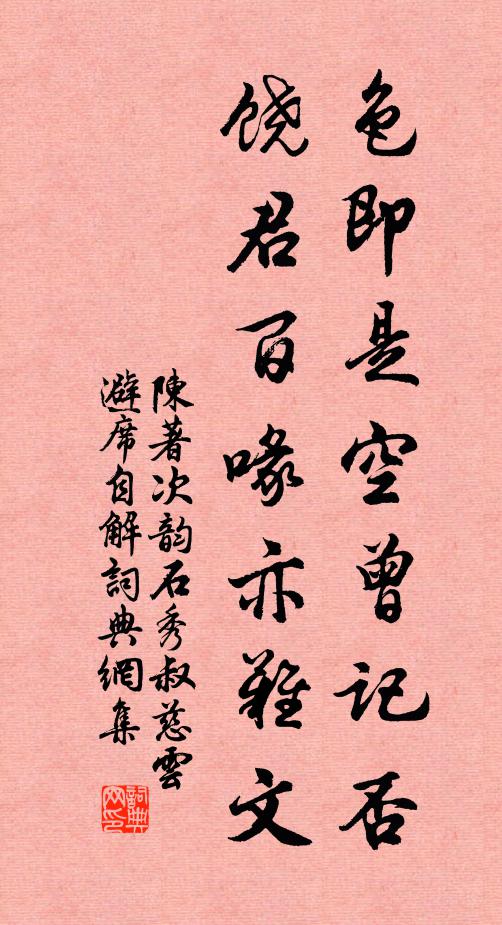 色即是空曾记否
饶君百喙亦難文
陳著次韵石秀叔慈雲
避席自解詞典網集
詞典网印